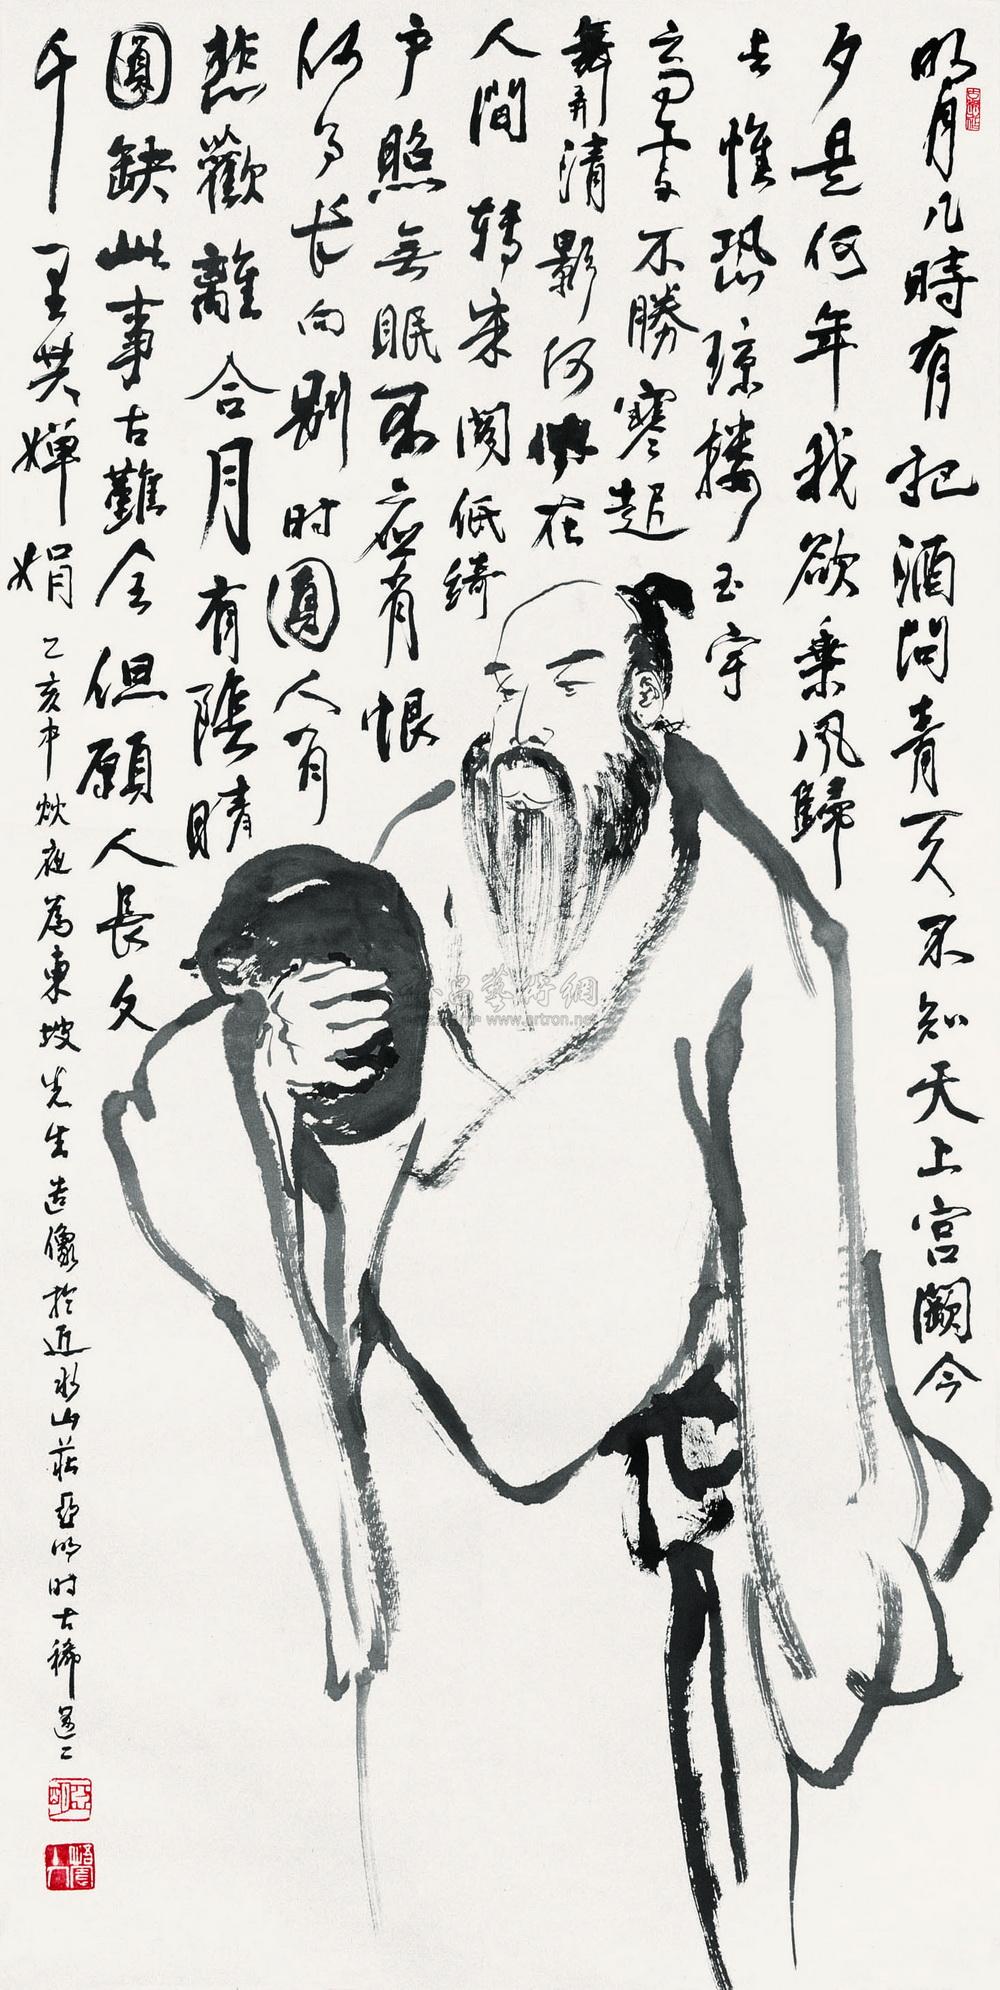 明月几時有把酒問青天不知天上宮闕今
夕是何年我欲乘风歸
去惟恐琼楼玉宇
高處不勝寒起
舞弄清影何似在
人間轉朱閣低綺
户照無眠不應有恨
何事长向别时圓人有
悲歡離合月有陰晴
圓缺此事古難全但願人長久
千里共嬋娟
乙亥中秋夜為東坡先生造像於近水山莊亞明时古稀過二
昌藝術網
www.artron.net